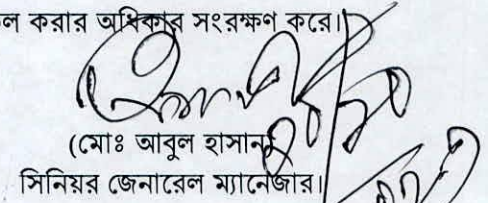 ল করার অধিকার সংরক্ষণ করে।
(মোঃ আবুল হাসান)
সিনিয়র জেনারেল ম্যানেজার।